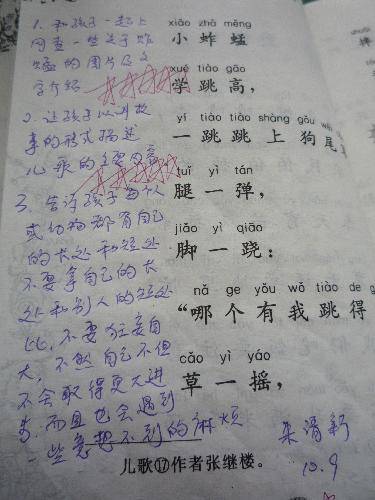 1. 和孩子一起上
网查一些关于蚱
蜢的图片及文
字介绍
2. 让孩子以讲故
事的形式描述
儿歌的主要内容
3. 告诉孩子每个人
或动物都有自己
的长处和短处
不要拿自己的长
处和别人的短处
比,不要狂妄自
大,不然自己不但
不会取得更大进
步,而且也会遇到
一些意想不到的麻烦
xiǎo zhà měng
小蚱蜢
xué tiào gāo
学跳高,
yí tiào tiào shàng gǒu wěi
一跳跳上狗尾
tuǐ yì tán
腿一弹,
jiǎo yì qiāo
脚一跷:
nǎ ge yǒu wǒ tiào de g
“哪个有我跳得
cǎo yì yáo
草一摇,
10.9
儿歌⑰作者张继楼。